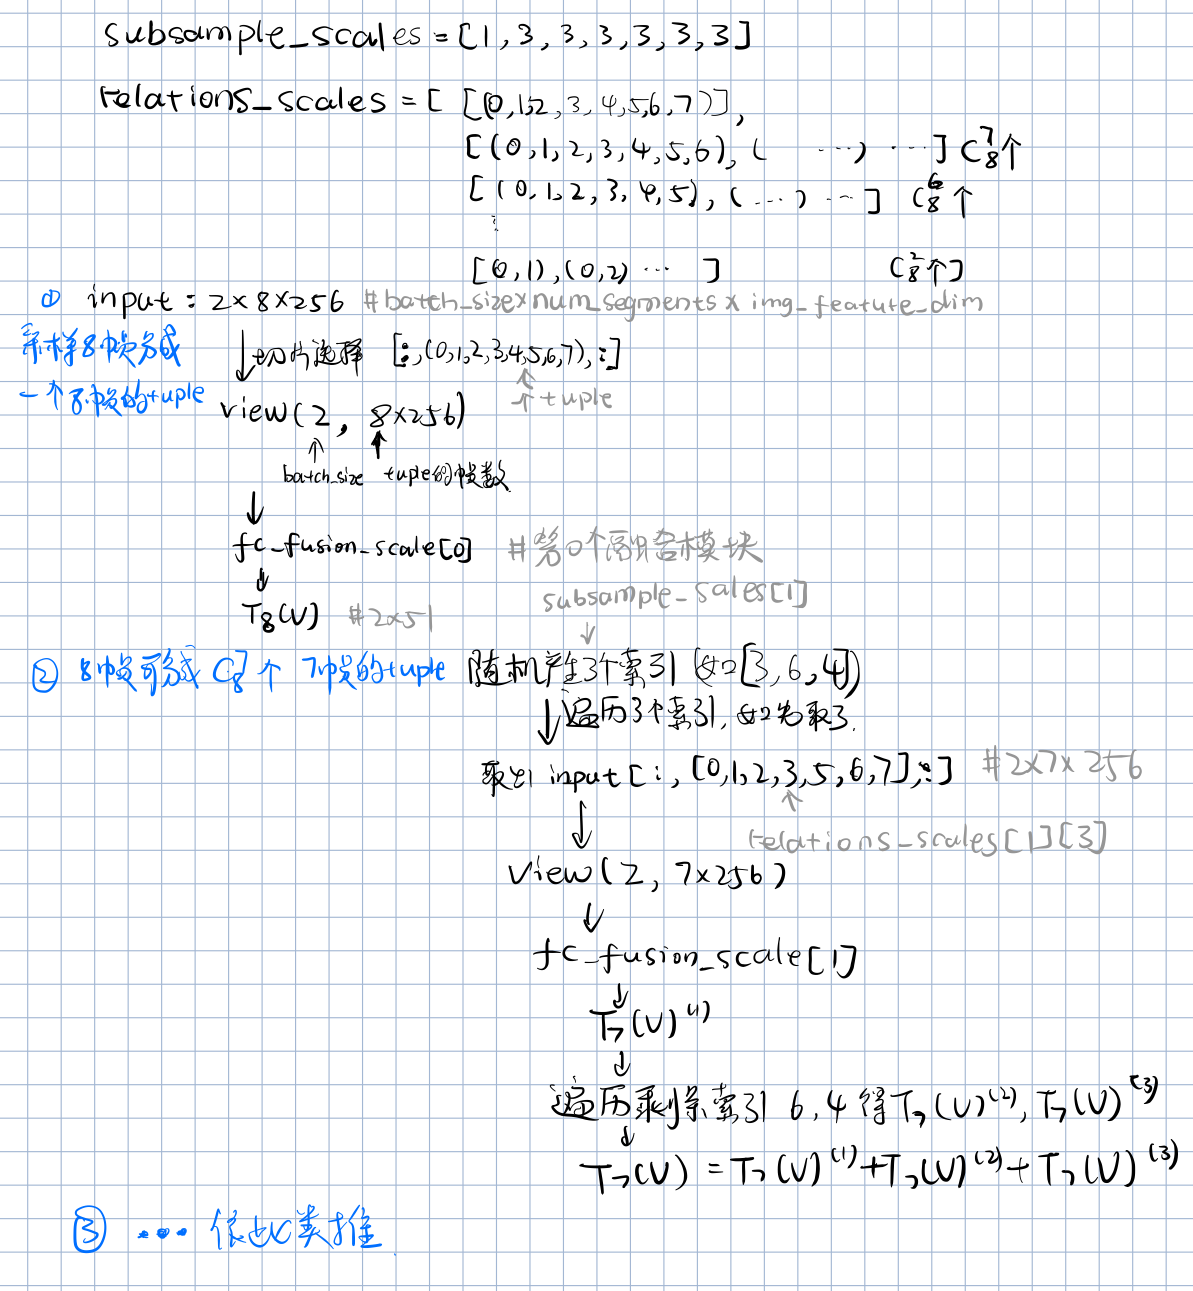 subsample_scales = [1, 3, 3, 3, 3, 3, 3]
relations_scales = [ [(0,1,2,3,4,5,6,7)],
[(0,1,2,3,4,5,6), ( ...) ...] C₈⁷个
[(0,1,2,3,4,5), (...) ...] C₈⁶个
⋮
[0,1), (0,2) ... ] C₈²个]
① input : 2×8×256 #batch_size×num_segments×img_feature_dim
采样8帧形成
一个8帧的tuple
↓切片选择 [:,(0,1,2,3,4,5,6,7),:]
↑tuple
view(2, 8×256)
↑ ↑
batch_size tuple的帧数
↓
fc_fusion_scale[0] #第0个融合模块
↓
T₈(V) #2×51
subsample_sales[1]
↓
② 8帧形成C₈⁷个 7帧的tuple 随机产生3个索引(如[3,6,4])
↓遍历3个索引,如先取3.
取出input[:,[0,1,2,3,5,6,7],:] #2×7×256
↑
relations_scales[1][3]
↓
view(2, 7×256)
↓
fc_fusion_scale[1]
↓
T₇(V)⁽¹⁾
↓
遍历剩余索引 6,4 得T₇(V)⁽²⁾, T₇(V)⁽³⁾
↓
T₇(V) = T₇(V)⁽¹⁾+T₇(V)⁽²⁾+T₇(V)⁽³⁾
③ ... 依此类推